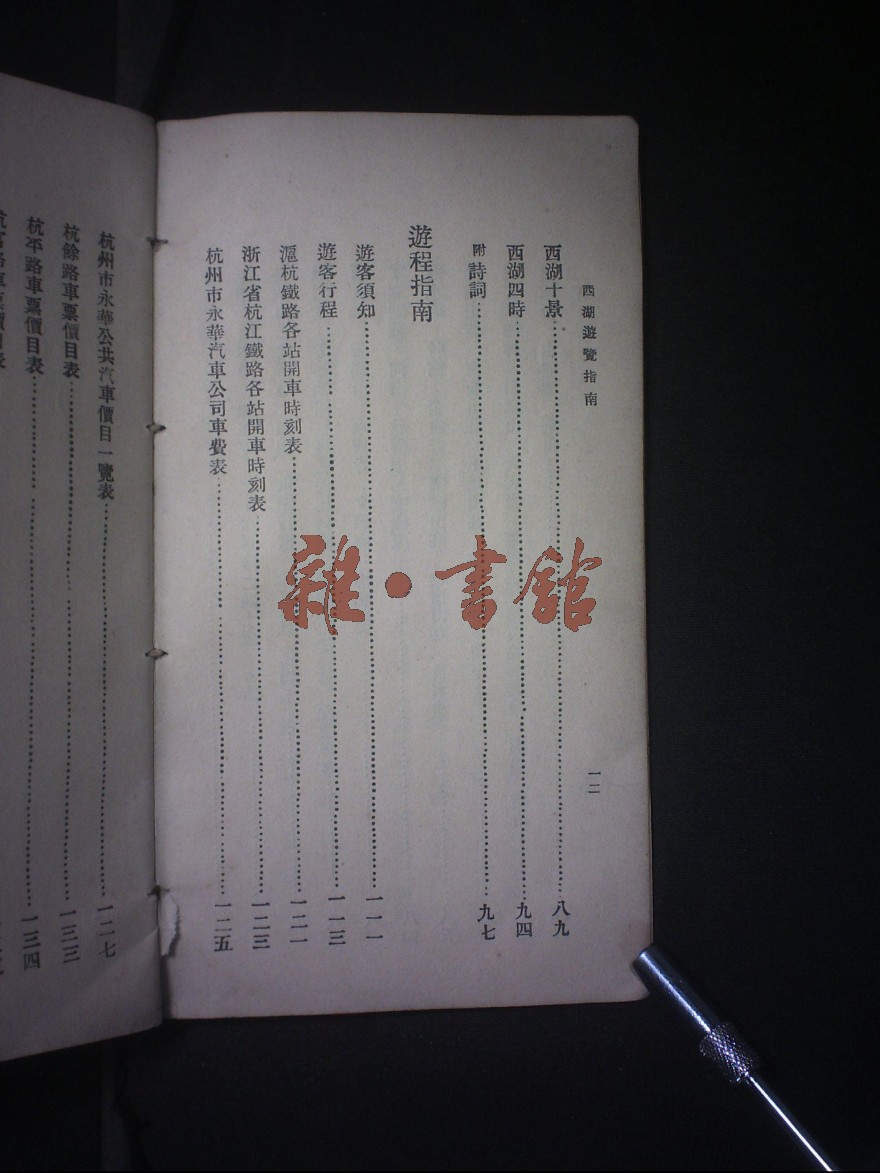 西湖遊覽指南
一二
西湖十景……八九
西湖四時……九四
附詩詞……九七
遊程指南
遊客須知……一一一
遊客行程……一一三
滬杭鐵路各站開車時刻表……一二一
浙江省杭江鐵路各站開車時刻表……一二三
杭州市永華汽車公司車費表……一二五
杭州市永華公共汽車價目一覽表……一二七
杭餘路車票價目表……一三三
杭平路車票價目表……一三四
雜·書館